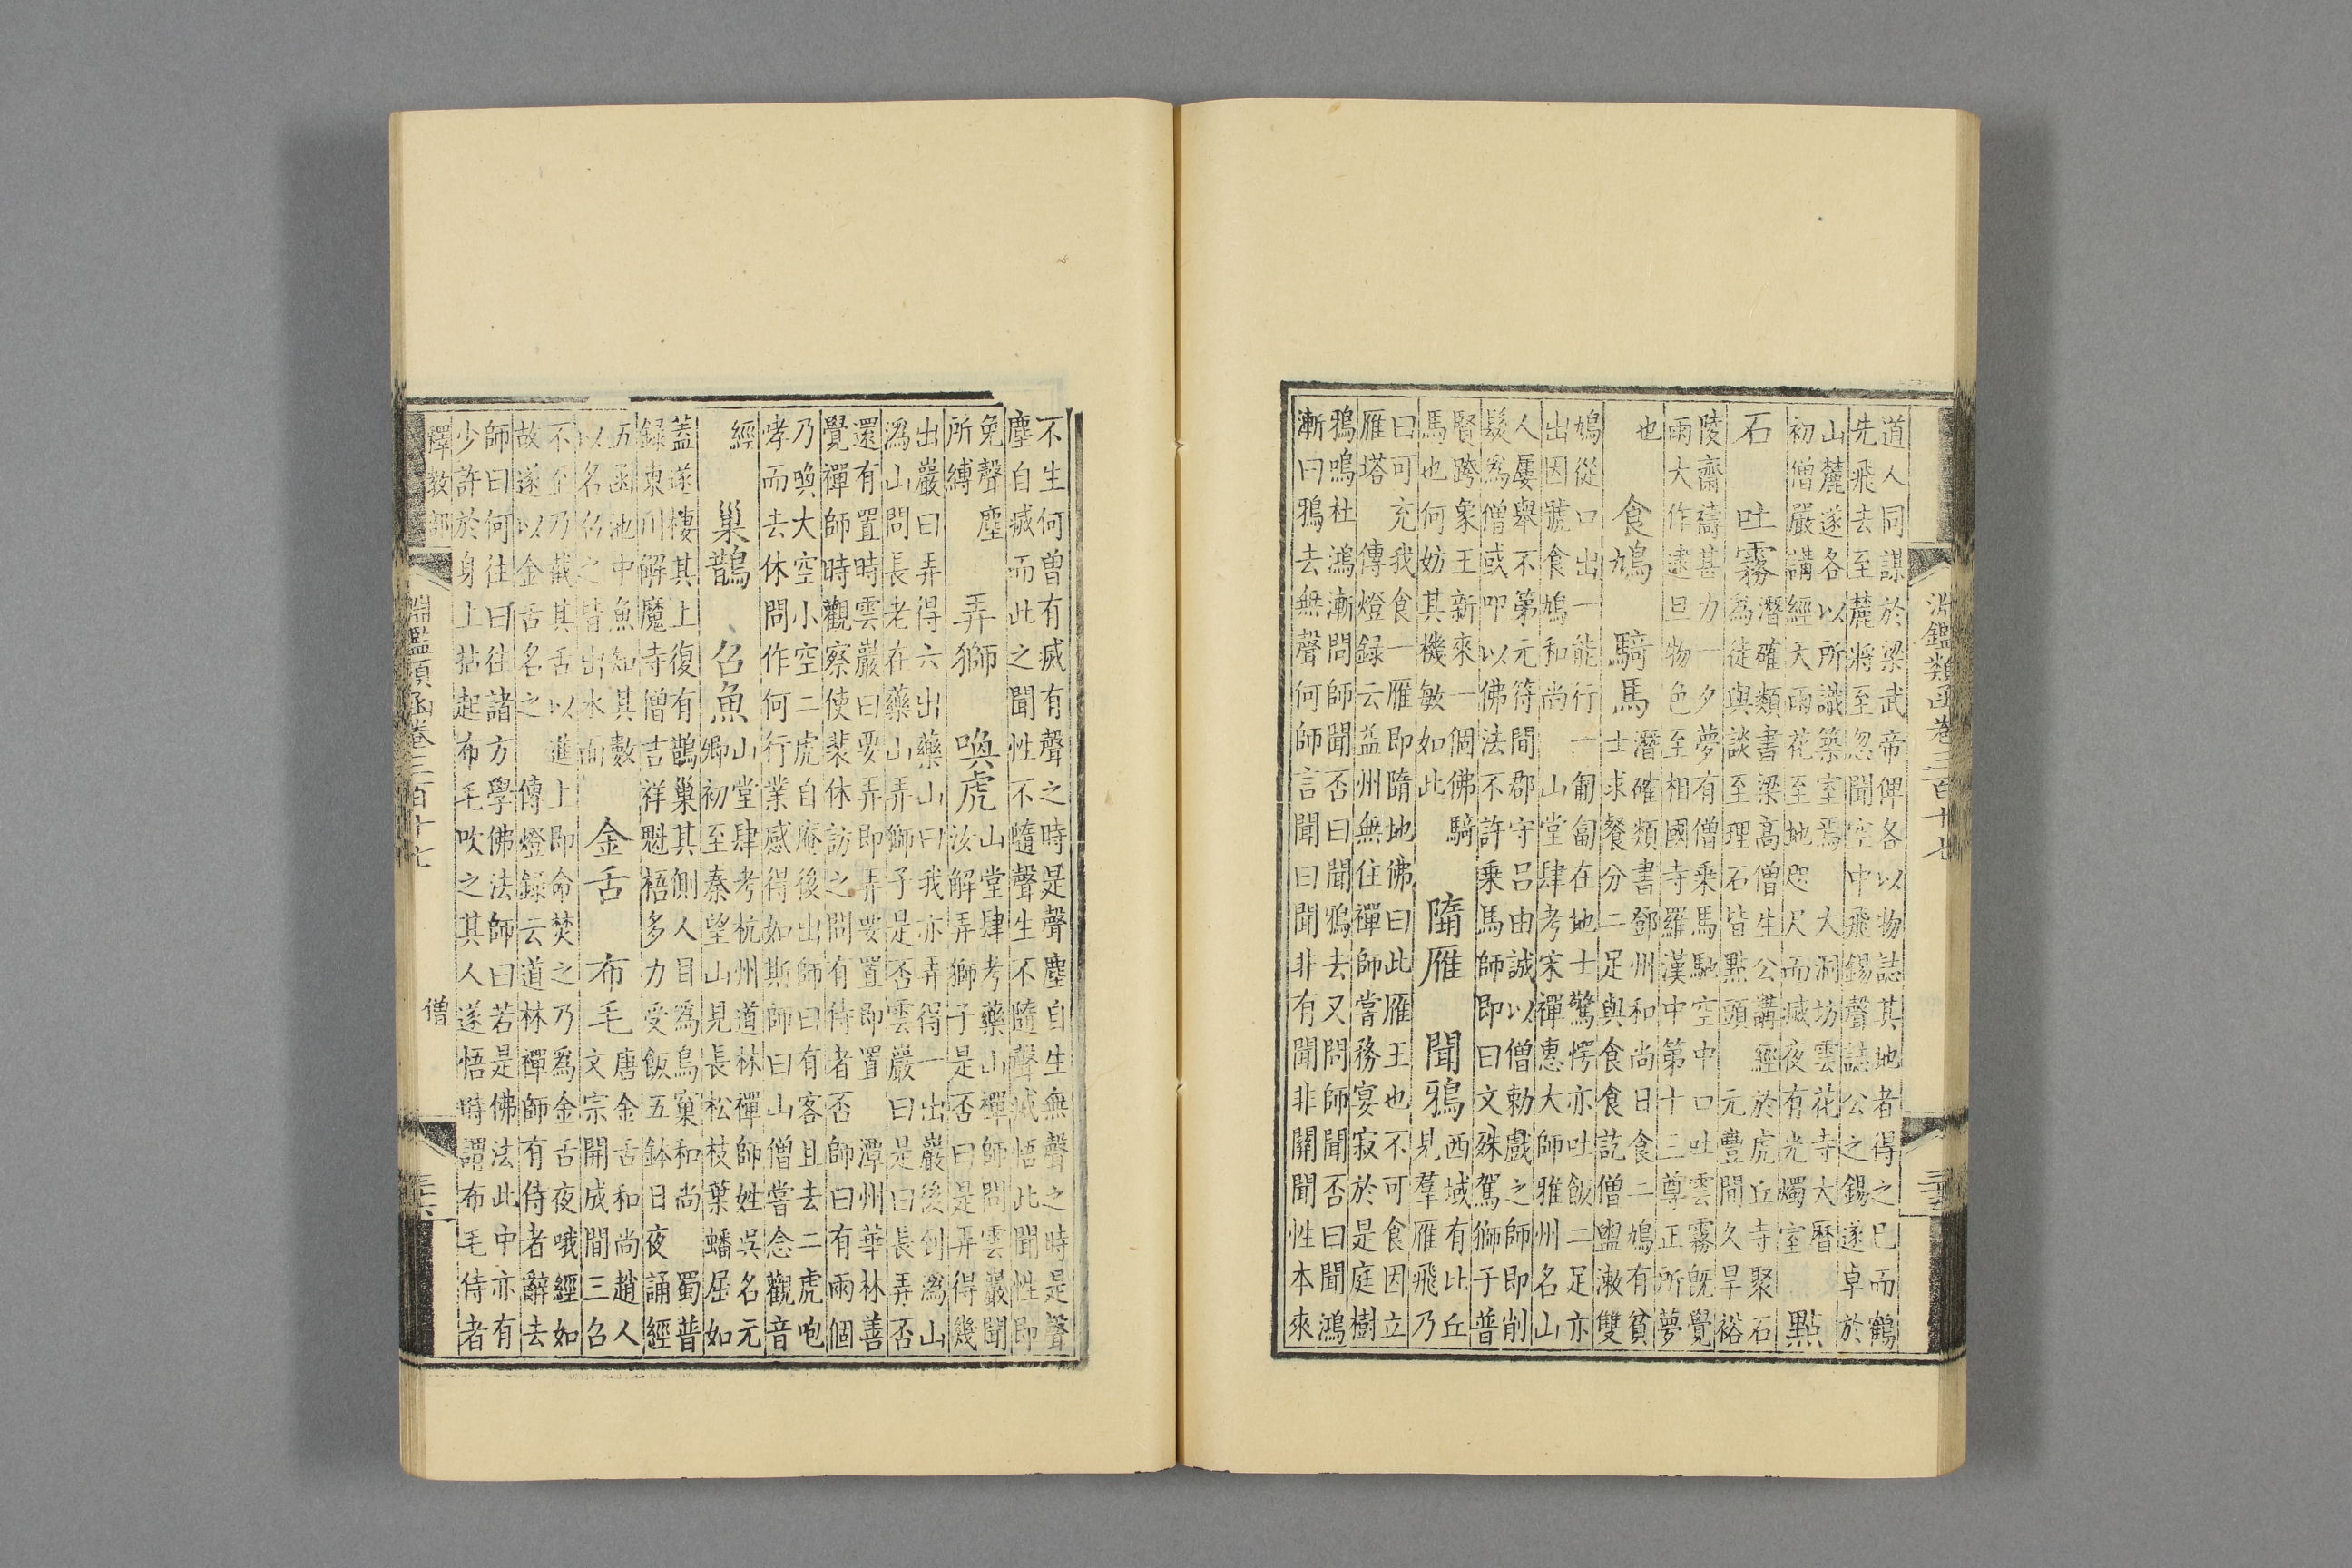 淵鑑類函卷三百十七
道人同謀於梁武帝俾各以物誌其地者得之已而鶴
先飛去至麓將至忽聞空中飛錫聲誌公之錫遂卓於
山麓遂各以所識築室焉 大洞坊雲花寺大曆
初僧嚴講經天雨花至地咫尺而滅夜有光燭室
點
石 吐霧
潛確類書梁高僧生公講經於虎丘寺聚石
為徒與談至理石皆點頭 元豐間久旱裕
陵齋禱甚力一夕夢有僧乘馬馳空中口吐雲霧既覺
雨大作逮旦物色至相國寺羅漢中第十三尊正所夢
也
食鳩 騎馬
潛確類書鄧州和尚日食二鳩有貧
士求餐分二足與食食訖僧盥漱雙
鳩從口出一能行一匍匐在地士驚愕亦吐飯二足亦
出因號食鳩和尚 山堂肆考宋禪惠大師雅州名山
人屢舉不第元符間郡守呂由誠以僧勅戲之師即削
髮為僧或叩以佛法不許乘馬師即曰文殊駕獅子普
賢跨象王新來一個佛騎
馬也何妨其機敏如此
隋雁 聞鴉
西域有比丘
見羣雁飛乃
曰可充我食一雁即隋地佛曰此雁王也不可食因立
雁塔 傳燈録云益州無住禪師嘗務宴寂於是庭樹
鴉鳴杜鴻漸問師聞否曰聞鴉去又問師聞否曰聞鴻
漸曰鴉去無聲何師言聞曰聞非有聞非關聞性本來
不生何曾有滅有聲之時是聲塵自生無聲之時是聲
塵自滅而此之聞性不隨聲生不隨聲滅悟此聞性即
免聲塵
所縛
弄獅 喚虎
山堂肆考藥山禪師問雲巖聞
汝解弄獅子是否曰是弄得幾
出巖曰弄得六出藥山曰我亦弄得一出巖後到溈山
溈山問長老在藥山弄獅子是否雲巖曰是曰長弄否
還有置時雲巖曰要弄即弄要置即置 潭州華林善
覺禪師時觀察使裴休訪之問有侍者否師曰有兩個
乃喚大空小空二虎自庵後出師曰有客且去二虎咆
哮而去休問作何行業感得如斯師曰山僧嘗念觀音
經
巢鵲 召魚
山堂肆考杭州道林禪師姓吳名元
卿初至秦望山見長松枝葉蟠屈如
蓋遂棲其上復有鵲巢其側人目為鳥窠和尚 蜀普
録東川解魔寺僧吉祥魁梧多力受飯五鉢日夜誦經
五函池中魚知其數
以名召之皆出水面
金舌 布毛
唐金舌和尚趙人
文宗開成間三召
不至乃截其舌以進上即命焚之乃為金舌夜哦經如
故遂以金舌名之 傳燈録云道林禪師有侍者辭去
師曰何往曰往諸方學佛法師曰若是佛法此中亦有
少許於身上拈起布毛吹之其人遂悟時謂布毛侍者
釋教部
僧
淵鑑類函卷三百十七